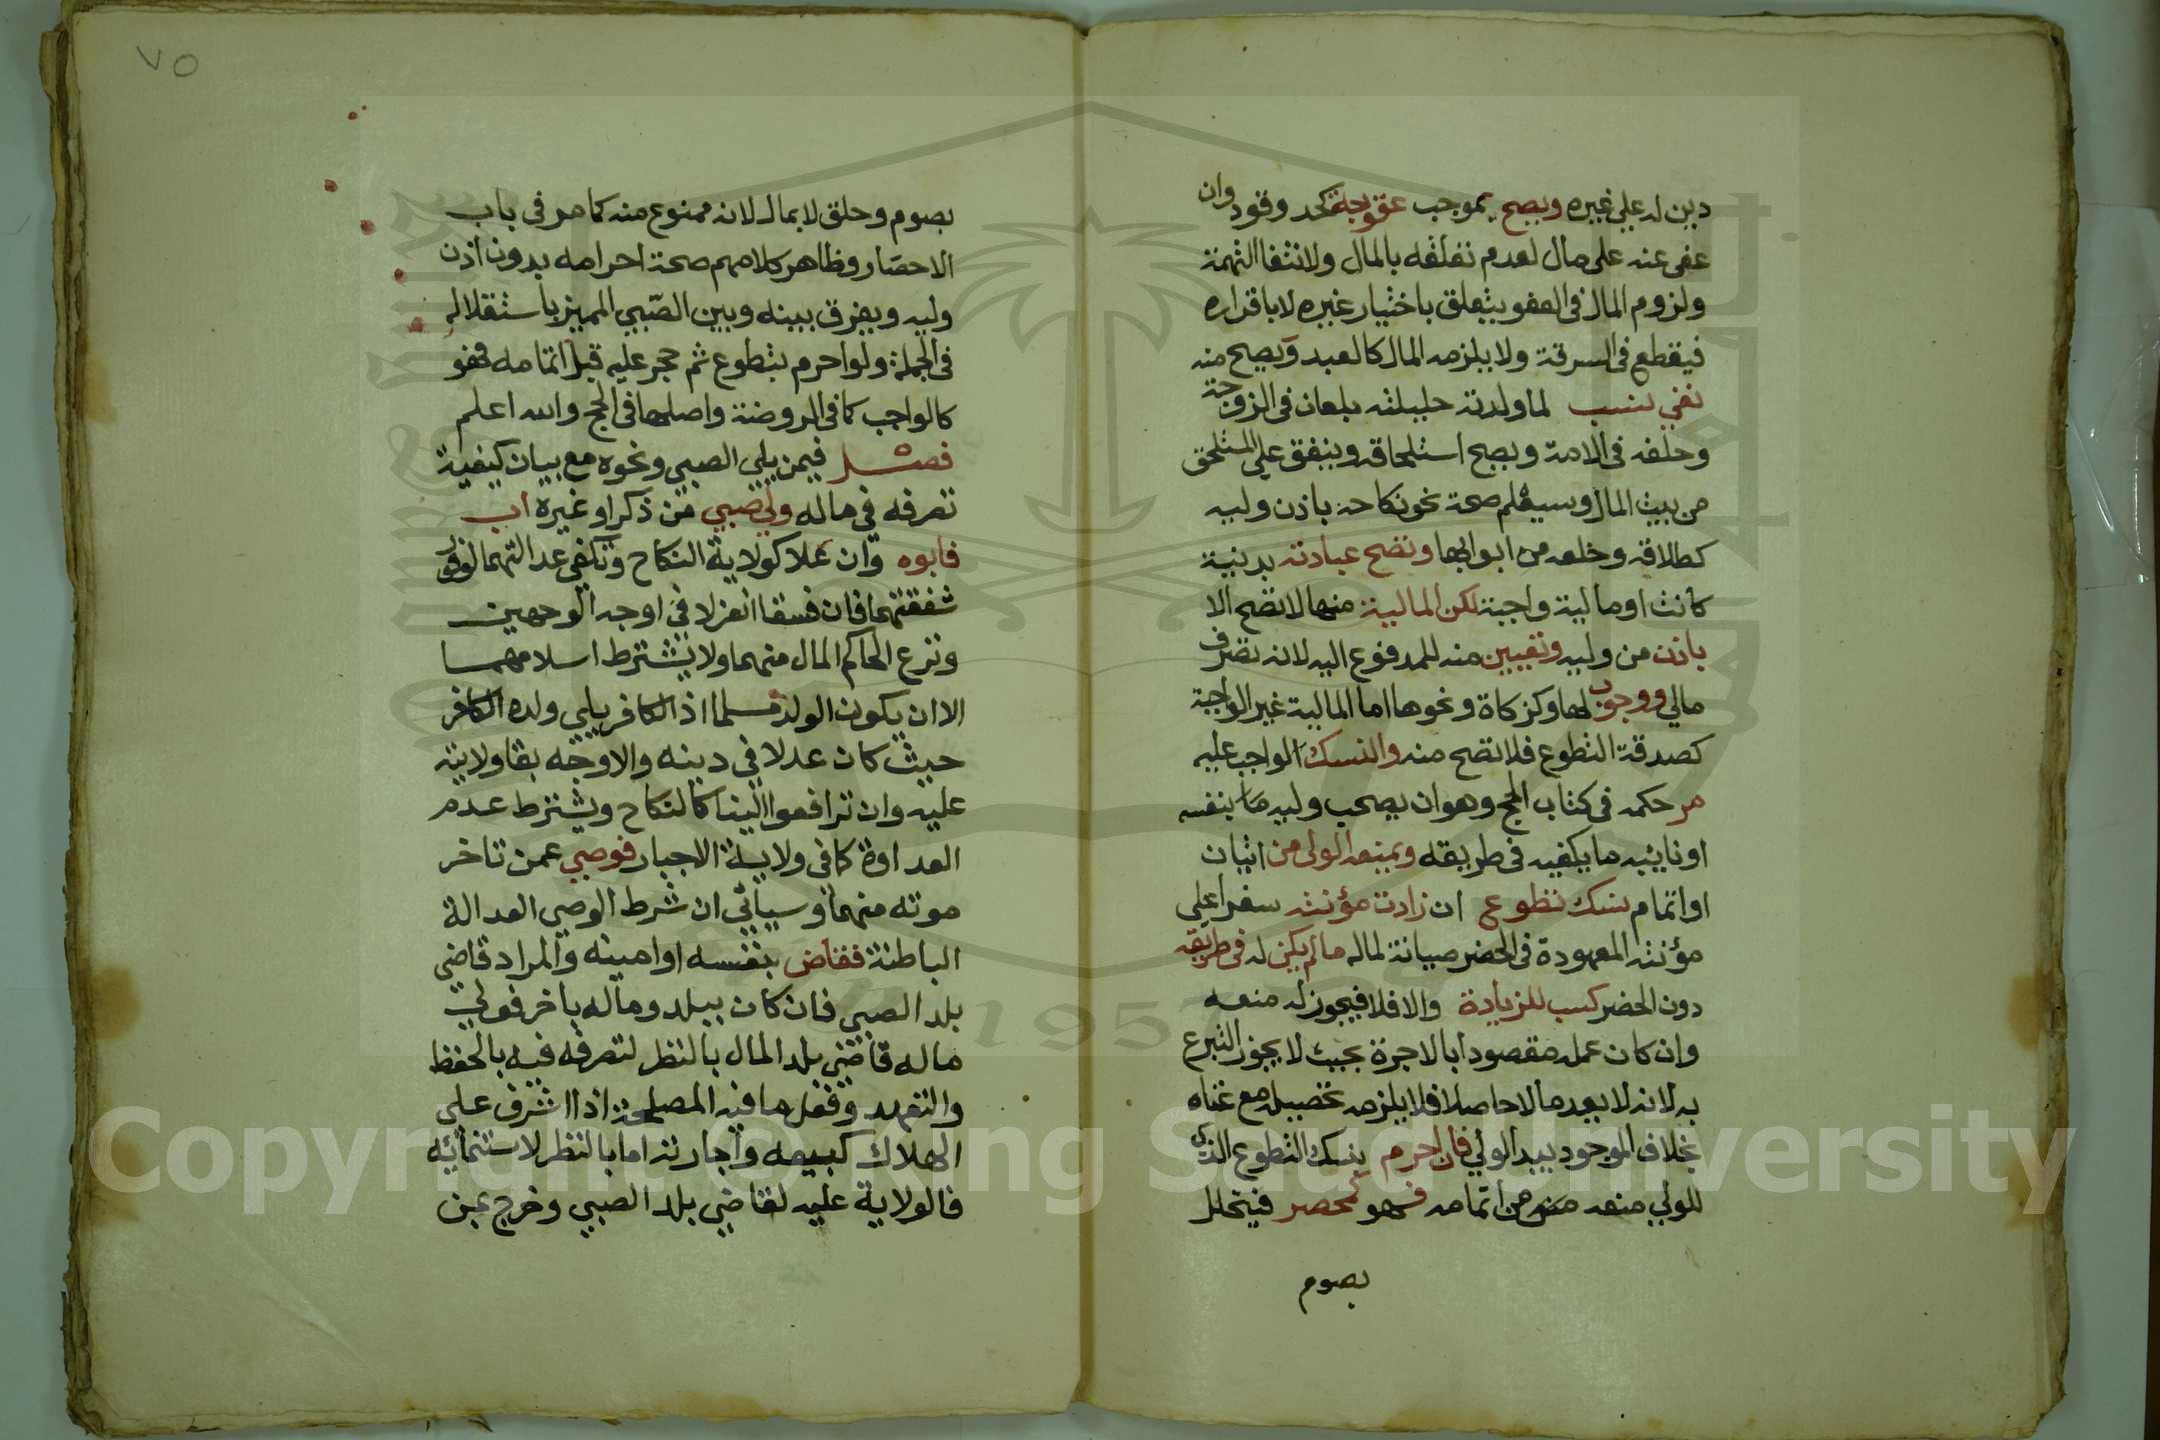 دين له علي غيره ويصح بموجب عقوبة كحد وقود وان
عفى عنه على مال لعدم تعلقه بالمال ولانتفا التهمة
ولزوم المال في العفو يتعلق باختيار غيره لا باقراره
فيقطع في السرقة ولا يلزمه المال كالعبد ويصح منه
نفي نسب لما ولدته حليلته بلعان في الزوجة
وحلفه في الامة ويصح استلحاقه وينفق علي المستلحق
من بيت المال وسيعلم صحة نحو نكاحه باذن وليه
كطلاقه وخلعه من ابوابها وتصح عبادته بدنية
كانت او مالية واجبة لكن المالية منها لا تصح الا
باذن من وليه وتعيين منه للمدفوع اليه لانه تصرف
مالي ووجوب لها وكزكاة ونحوها اما المالية غير الواجبة
كصدقة التطوع فلا تصح منه والنسك الواجب عليه
مر حكمه في كتاب الحج وهو ان يصحب وليه ما بنفسه
او نايبه ما يكفيه في طريقه ويمنعه الولى من اتيان
او اتمام نسك تطوع ان زادت مؤنته سفرا علي
مؤنته المعهودة في الحضر صيانة لماله مالم يكن له في طريقه
دون الحضر كسب للزيادة والا فلا فيجوز له منعه
وان كان عمله مقصودا بالاجرة بحيث لا يجوز التبرع
به لانه لا يعد مالا حاصلا فلا يلزمه تحصيله مع غناه
بخلاف الموجود بيد الولي فان احرم بنسك التطوع الذي
للولي منعه من اتمامه فهو كمحصر فيتحلل
بصوم
٧٥
بصوم وحلق لا بمال لانه ممنوع منه كما مر في باب
الاحصار وظاهر كلامهم صحة احرامه بدون اذن
وليه ويفرق بينه وبين الصبي المميز باستقلاله
في الجملة ولو احرم بتطوع ثم حجر عليه قبل اتمامه فهو
كالواجب كما في الروضة واصلها في الحج والله اعلم
فصل فيمن يلي الصبي ونحوه مع بيان كيفية
تصرفه في ماله ولي صبي من ذكر او غيره اب
فابوه وان علا كولاية النكاح وتكفي عدالتهما لوفور
شفقتهما فان فسقا انعزلا في اوجه الوجهين
ونزع الحاكم المال منهما ولا يشترط اسلامهما
الا ان يكون الولد مسلما اذ الكافر يلي ولده الكافر
حيث كان عدلا في دينه والاوجه بقا ولايته
عليه وان ترافعوا الينا كالنكاح ويشترط عدم
العداوة كما في ولاية الاجبار فوصي عمن تاخر
موته منهما وسياتي ان شرط الوصي العدالة
الباطنة فقاض بنفسه او امينه والمراد قاضي
بلد الصبي فان كان ببلد وماله باخر فولي
ماله قاضي بلد المال بالنظر لتصرفه فيه بالحفظ
والتعهد وفعل ما فيه المصلحة اذا اشرف على
الهلاك كبيعه واجارته اما بالنظر لاستنمائه
فالولاية عليه لقاضي بلد الصبي وخرج بمن
Copyright © King Saud University
1957